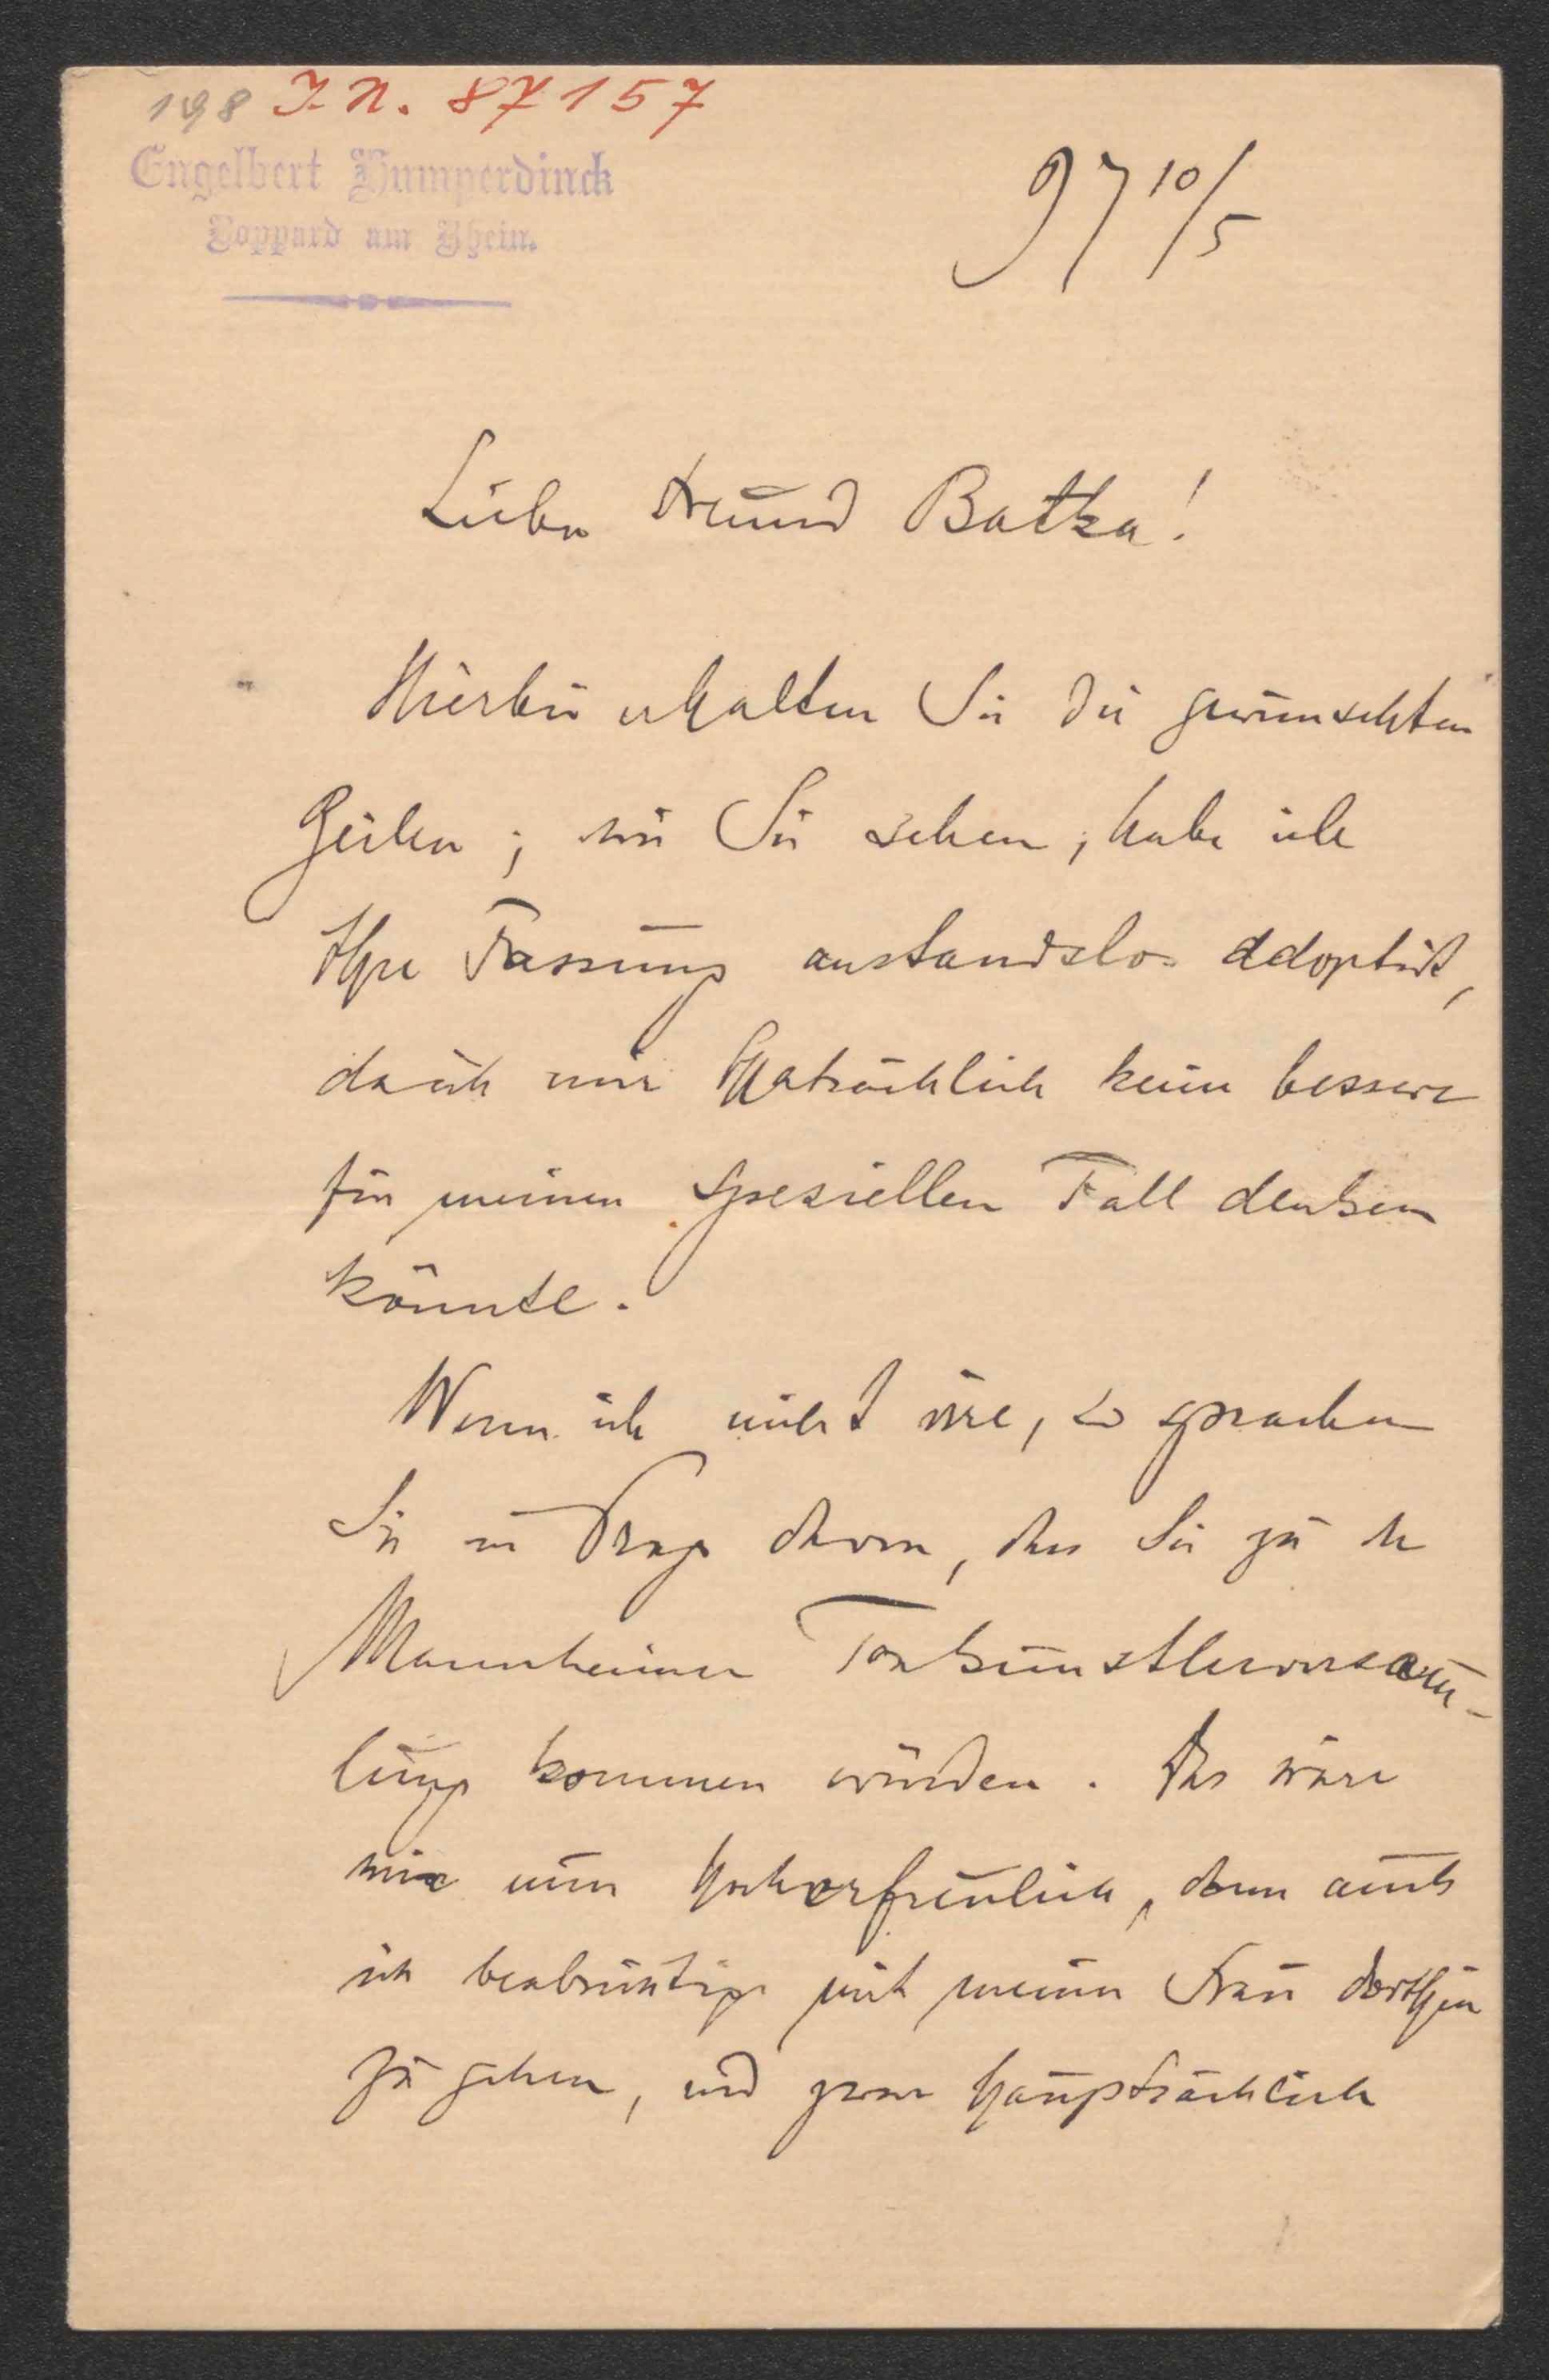 198 I. N. 87157
Engelbert Humperdinck
Boppard am Rhein.
97 10/5
Lieber Freund Batka!
Hierbei erhalten Sie die gewünschten
Zeilen; wie Sie sehen, habe ich
Ihre Fassung anstandslos adoptirt,
da ich mir thatsächlich keine bessere
für meinen speziellen Fall denken
könnte.
Wenn ich nicht irre, so sprachen
Sie in Prag davon, dass Sie zu der
Mannheimer Tonkünstlerversam-
lung kommen würden. Das wäre
mir nun hocherfreulich, denn auch
ich beabsichtige mit meiner Frau dorthin
zu gehen, und zwar hauptsächlich